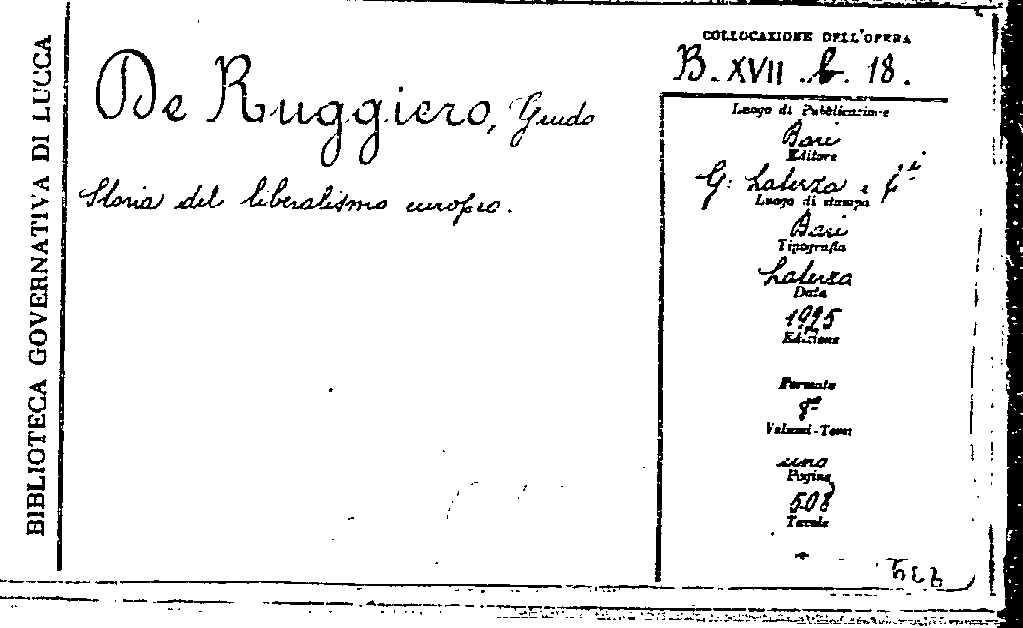 BIBLIOTECA GOVERNATIVA DI LUCCA
De Ruggiero, Guido
Storia del liberalismo europeo.
COLLOCAZIONE DELL'OPERA
B. XVII . b. 18.
Luogo di Pubblicazione
Bari
Editore
G: Laterza e f.i
Luogo di stampa
Bari
Tipografia
Laterza
Data
1925
Edizione
Formato
8º
Volumi-Tomi
uno
Pagine
508
Tavole